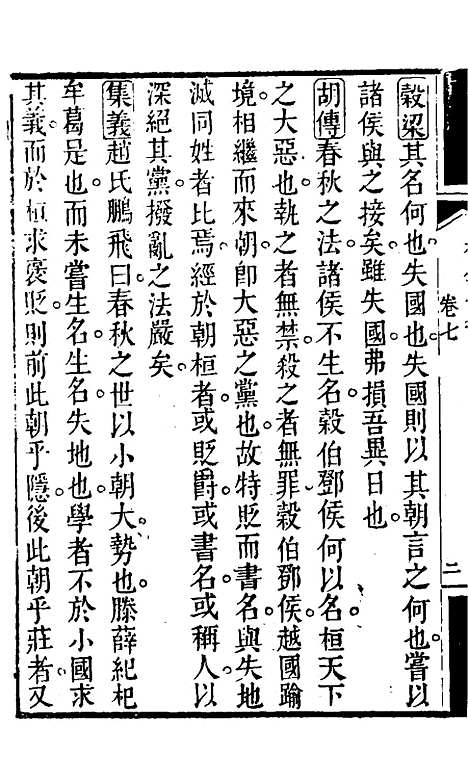 卷七
二
穀梁其名何也失國也失國則以其朝言之何也嘗以
諸侯與之接矣雖失國弗損吾異日也
胡傳春秋之法諸侯不生名穀伯鄧侯何以名桓天下
之大惡也執之者無禁殺之者無罪穀伯鄧侯越國踰
境相繼而來朝卽大惡之黨也故特貶而書名與失地
滅同姓者比焉經於朝桓者或貶爵或書名或稱人以
深絕其黨撥亂之法嚴矣
集義趙氏鵬飛曰春秋之世以小朝大勢也滕薛紀杞
牟葛是也而未嘗生名生名失地也學者不於小國求
其義而於桓求褒貶則前此朝乎隱後此朝乎莊者又